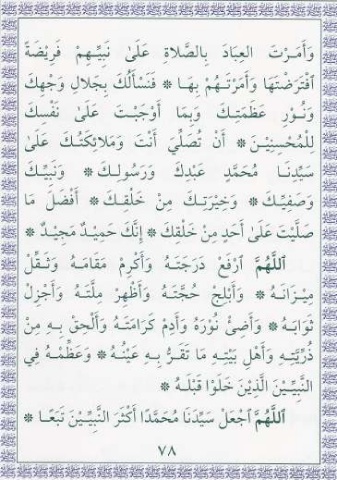 وَأَمَرْتَ العِبَادَ بِالصَّلاةِ عَلَىٰ نَبِيِّـهِمْ فَرِيْضَةً
اِفْتَرَضْتَهَا وَأَمَرْتَـهُمْ بِهَـا ۞ فَنَسْأَلُكَ بِجَلالِ وَجْهِكَ
وَنُـوْرِ عَظَمَتِـكَ وَبِمَا أَوْجَبْتَ عَلَىٰ نَفْسِكَ
لِلْمُحْسِنِيْنَ ۞ أَنْ تُصَلِّيَ أَنْتَ وَمَلائِكَتُكَ عَلَىٰ
سَيِّدِنَا مُحَمَّدٍ عَبْدِكَ وَرَسُولِـكَ ۞ وَنَبِيِّـكَ
وَصَفِيِّـكَ ۞ وَخِيْرَتِكَ مِنْ خَلْقِـكَ ۞ أَفْضَلَ مَا
صَلَّيْتَ عَلَىٰ أَحَدٍ مِنْ خَلْقِكَ ۞ إِنَّكَ حَمِيْدٌ مَجِيْدٌ ۞
اَللّٰهُمَّ ارْفَعْ دَرَجَتَهُ وَأَكْرِمْ مَقَامَهُ وَثَـقِّلْ
مِيْزَانَـهُ ۞ وَأَبْلِجْ حُجَّتَهُ وَأَظْهِرْ مِلَّتَهُ وَأَجْزِلْ
ثَوَابَـهُ ۞ وَأَضِئْ نُوْرَهُ وَأَدِمْ كَرَامَتَـهُ وَأَلْحِقْ بِهِ مِنْ
ذُرِّيَّتِهِ وَأَهْلِ بَيْتِهِ مَا تَقَرُّ بِهِ عَيْنُهُ ۞ وَعَظِّمْهُ فِي
النَّبِيِّينَ الَّذِيْنَ خَلَوْا قَبْلَهُ ۞
اَللّٰهُمَّ اجْعَلْ سَيِّدَنَا مُحَمَّدًا أَكْثَرَ النَّبِيِّيْنَ تَبَعًـا ۞
٧٨